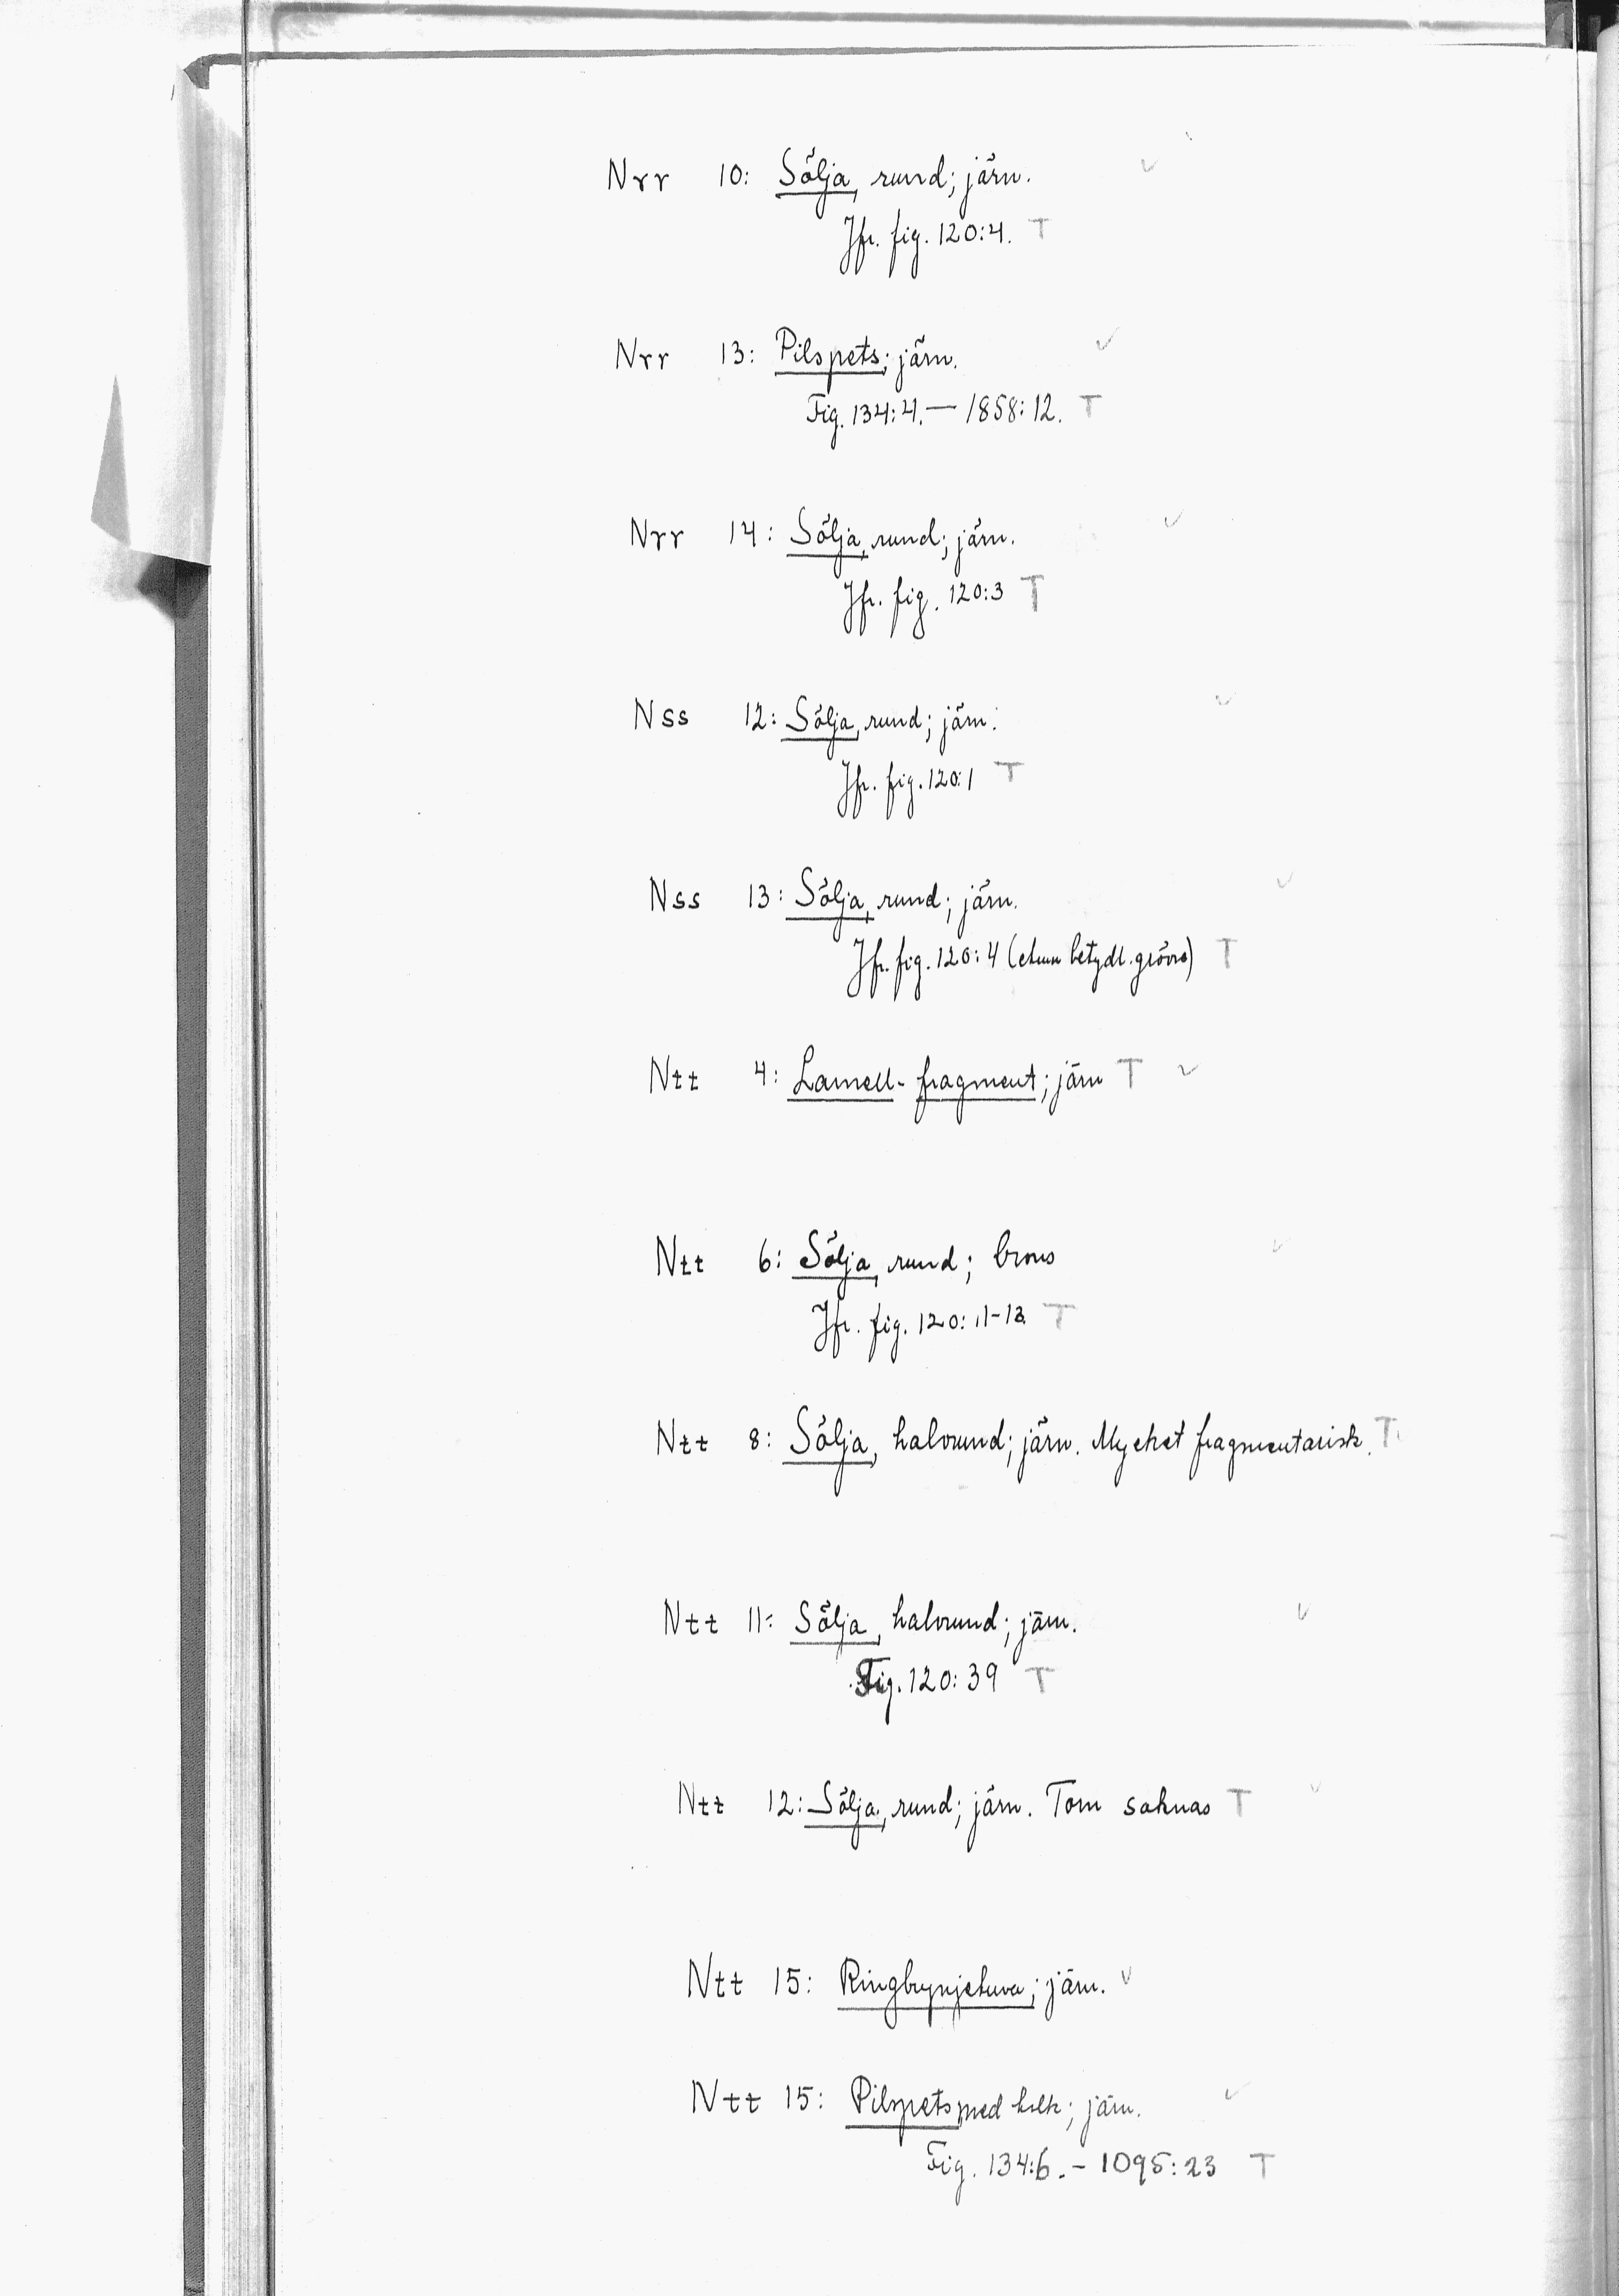 Nrr 10: Sölja, rund; järn. ✓
Jfr. fig. 120:4. T
Nrr 13: Pilspets; järn. ✓
Fig. 134:4. — 1858:12. T
Nrr 14: Sölja, rund; järn. ✓
Jfr. fig. 120:3 T
Nss 12: Sölja, rund; järn. ✓
Jfr. fig. 120:1 T
Nss 13: Sölja, rund; järn. ✓
Jfr. fig. 120:4 (ehuru betydl. grövre) T
Ntt 4: Lamell-fragment; järn T ✓
Ntt 6: Sölja, rund; brons ✓
Jfr. fig. 120: 11-13. T
Ntt 8: Sölja, halvrund; järn. Mycket fragmentarisk. T
Ntt 11: Sölja, halvrund; järn. ✓
Fig. 120:39 T
Ntt 12: Sölja, rund; järn. Torn saknas T ✓
Ntt 15: Ringbrynjehuva; järn. ✓
Ntt 15: Pilspets med holk; järn. ✓
Fig. 134:6. - 1095:23 T